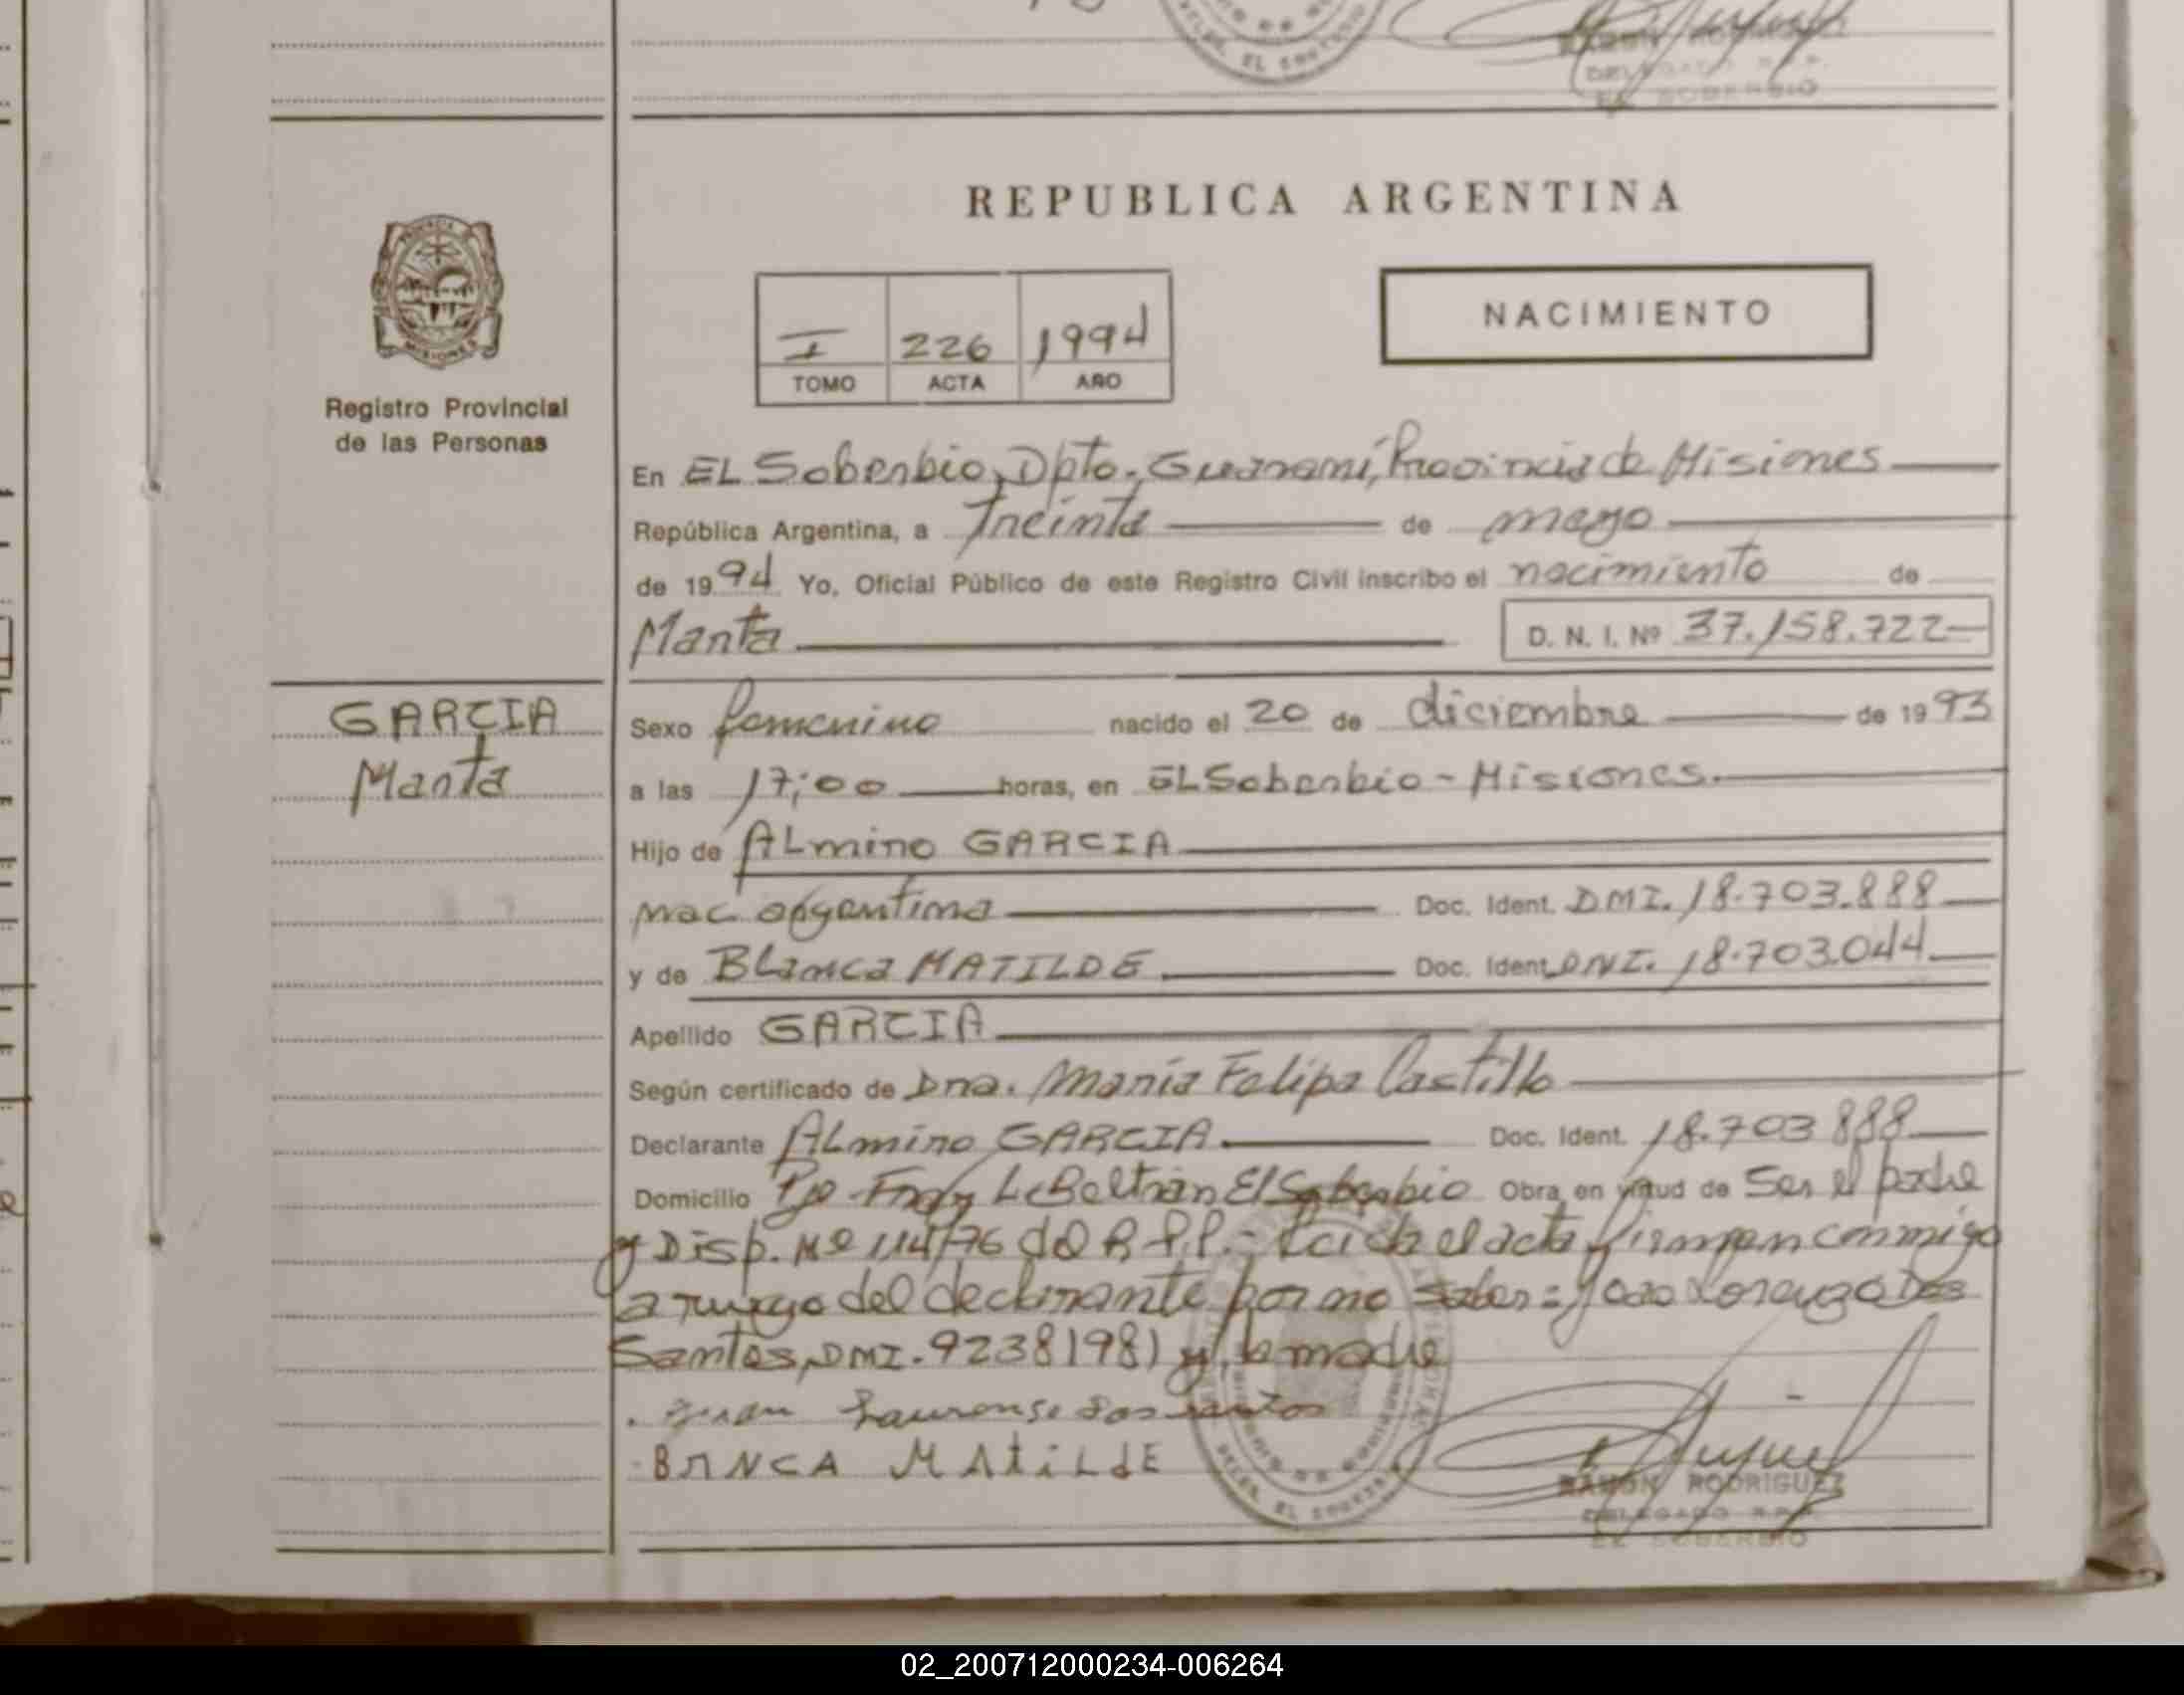 EL SOBERBIO
REPUBLICA ARGENTINA
NACIMIENTO
I 226 1994
TOMO ACTA AÑO
Registro Provincial
de las Personas
En EL Soberbio, Dpto. Guarani, Provincia de Misiones
República Argentina, a Treinta de mayo
de 1994 Yo, Oficial Público de este Registro Civil inscribo el nacimiento de
Marta D. N. I. Nº 37.158.722
GARCIA
Marta
Sexo femenino nacido el 20 de diciembre de 1993
a las 17:00 horas, en EL Soberbio - Misiones.
Hijo de ALmiro GARCIA
nac. argentina Doc. Ident. DNI. 18.703.888
y de BLanca MATILDE Doc. Ident. DNI. 18.703.044
Apellido GARCIA
Según certificado de Dna. Maria Felipa Castillo
Declarante ALmiro GARCIA Doc. Ident. 18.703 888
Domicilio Pje Fray L. Beltran El Soberbio Obra en virtud de Ser el padre
y Disp. Nº 114/76 del R.P.P.- Leida el acta firman conmigo
a ruego del declarante por no saber = Joao Lorenzo Dos
Santos, DNI. 92381981 y la madre
dos santos
BANCA MAtiLdE
RAMON RODRIGUEZ
DELEGADO R.P.P.
EL SOBERBIO
02_200712000234-006264